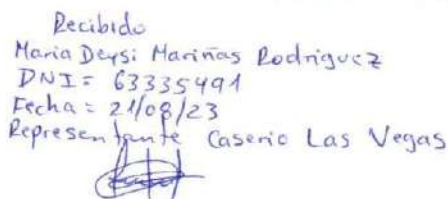 Recibido
Maria Deysi Mariñas Rodriguez
DNI = 63335491
Fecha = 21/08/23
Representante Caserio Las Vegas